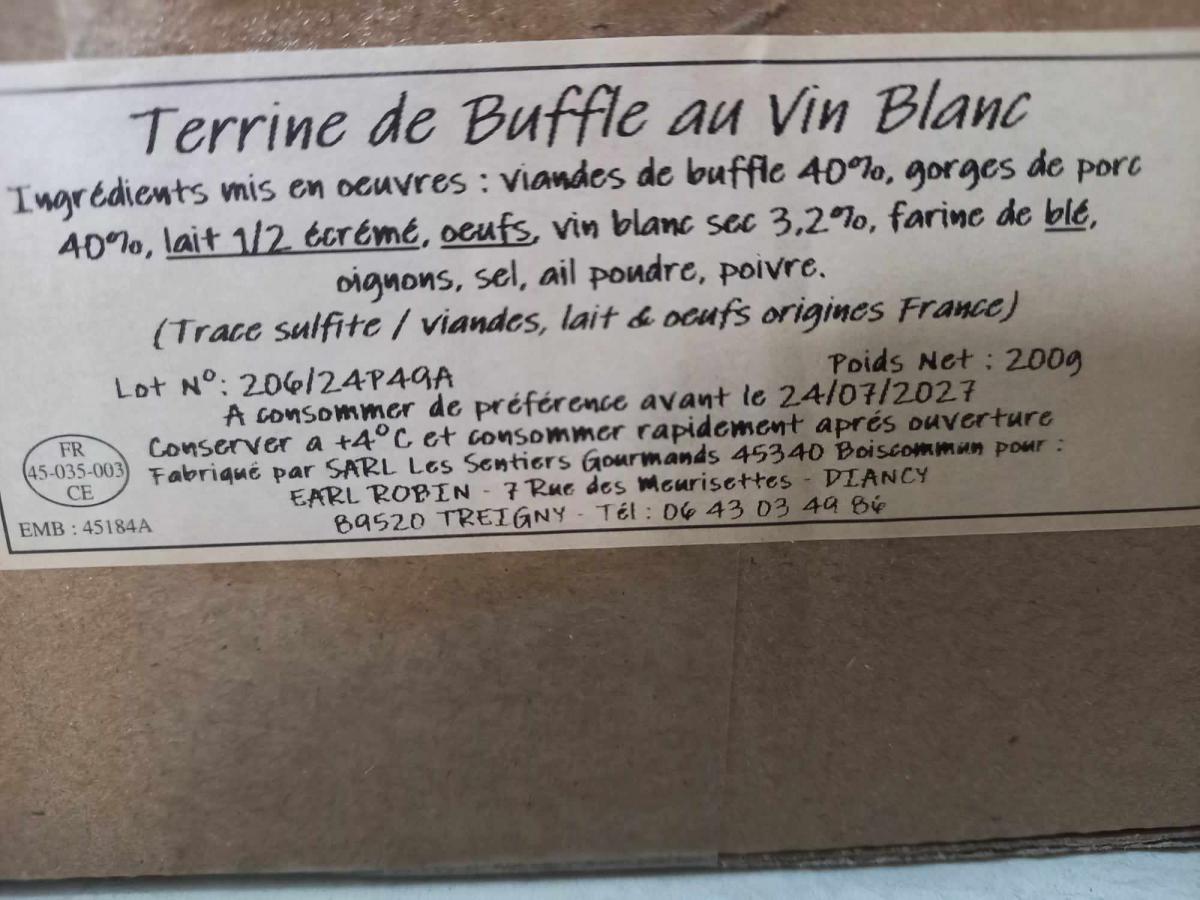 Terrine de Buffle au Vin Blanc
Ingrédients mis en oeuvres : viandes de buffle 40%, gorges de porc
40%, lait 1/2 écrémé, oeufs, vin blanc sec 3,2%, farine de blé,
oignons, sel, ail poudre, poivre.
(Trace sulfite / viandes, lait & oeufs origines France)
Lot N°: 206/24P49A
Poids Net : 200g
A consommer de préférence avant le 24/07/2027
Conserver a +4°C et consommer rapidement aprés ouverture
Fabriqué par SARL Les Sentiers Gourmands 45340 Boiscommun pour :
EARL ROBIN - 7 Rue des Meurisettes - DIANCY
89520 TREIGNY - Tél : 06 43 03 49 86
FR
45-035-003
CE
EMB : 45184A